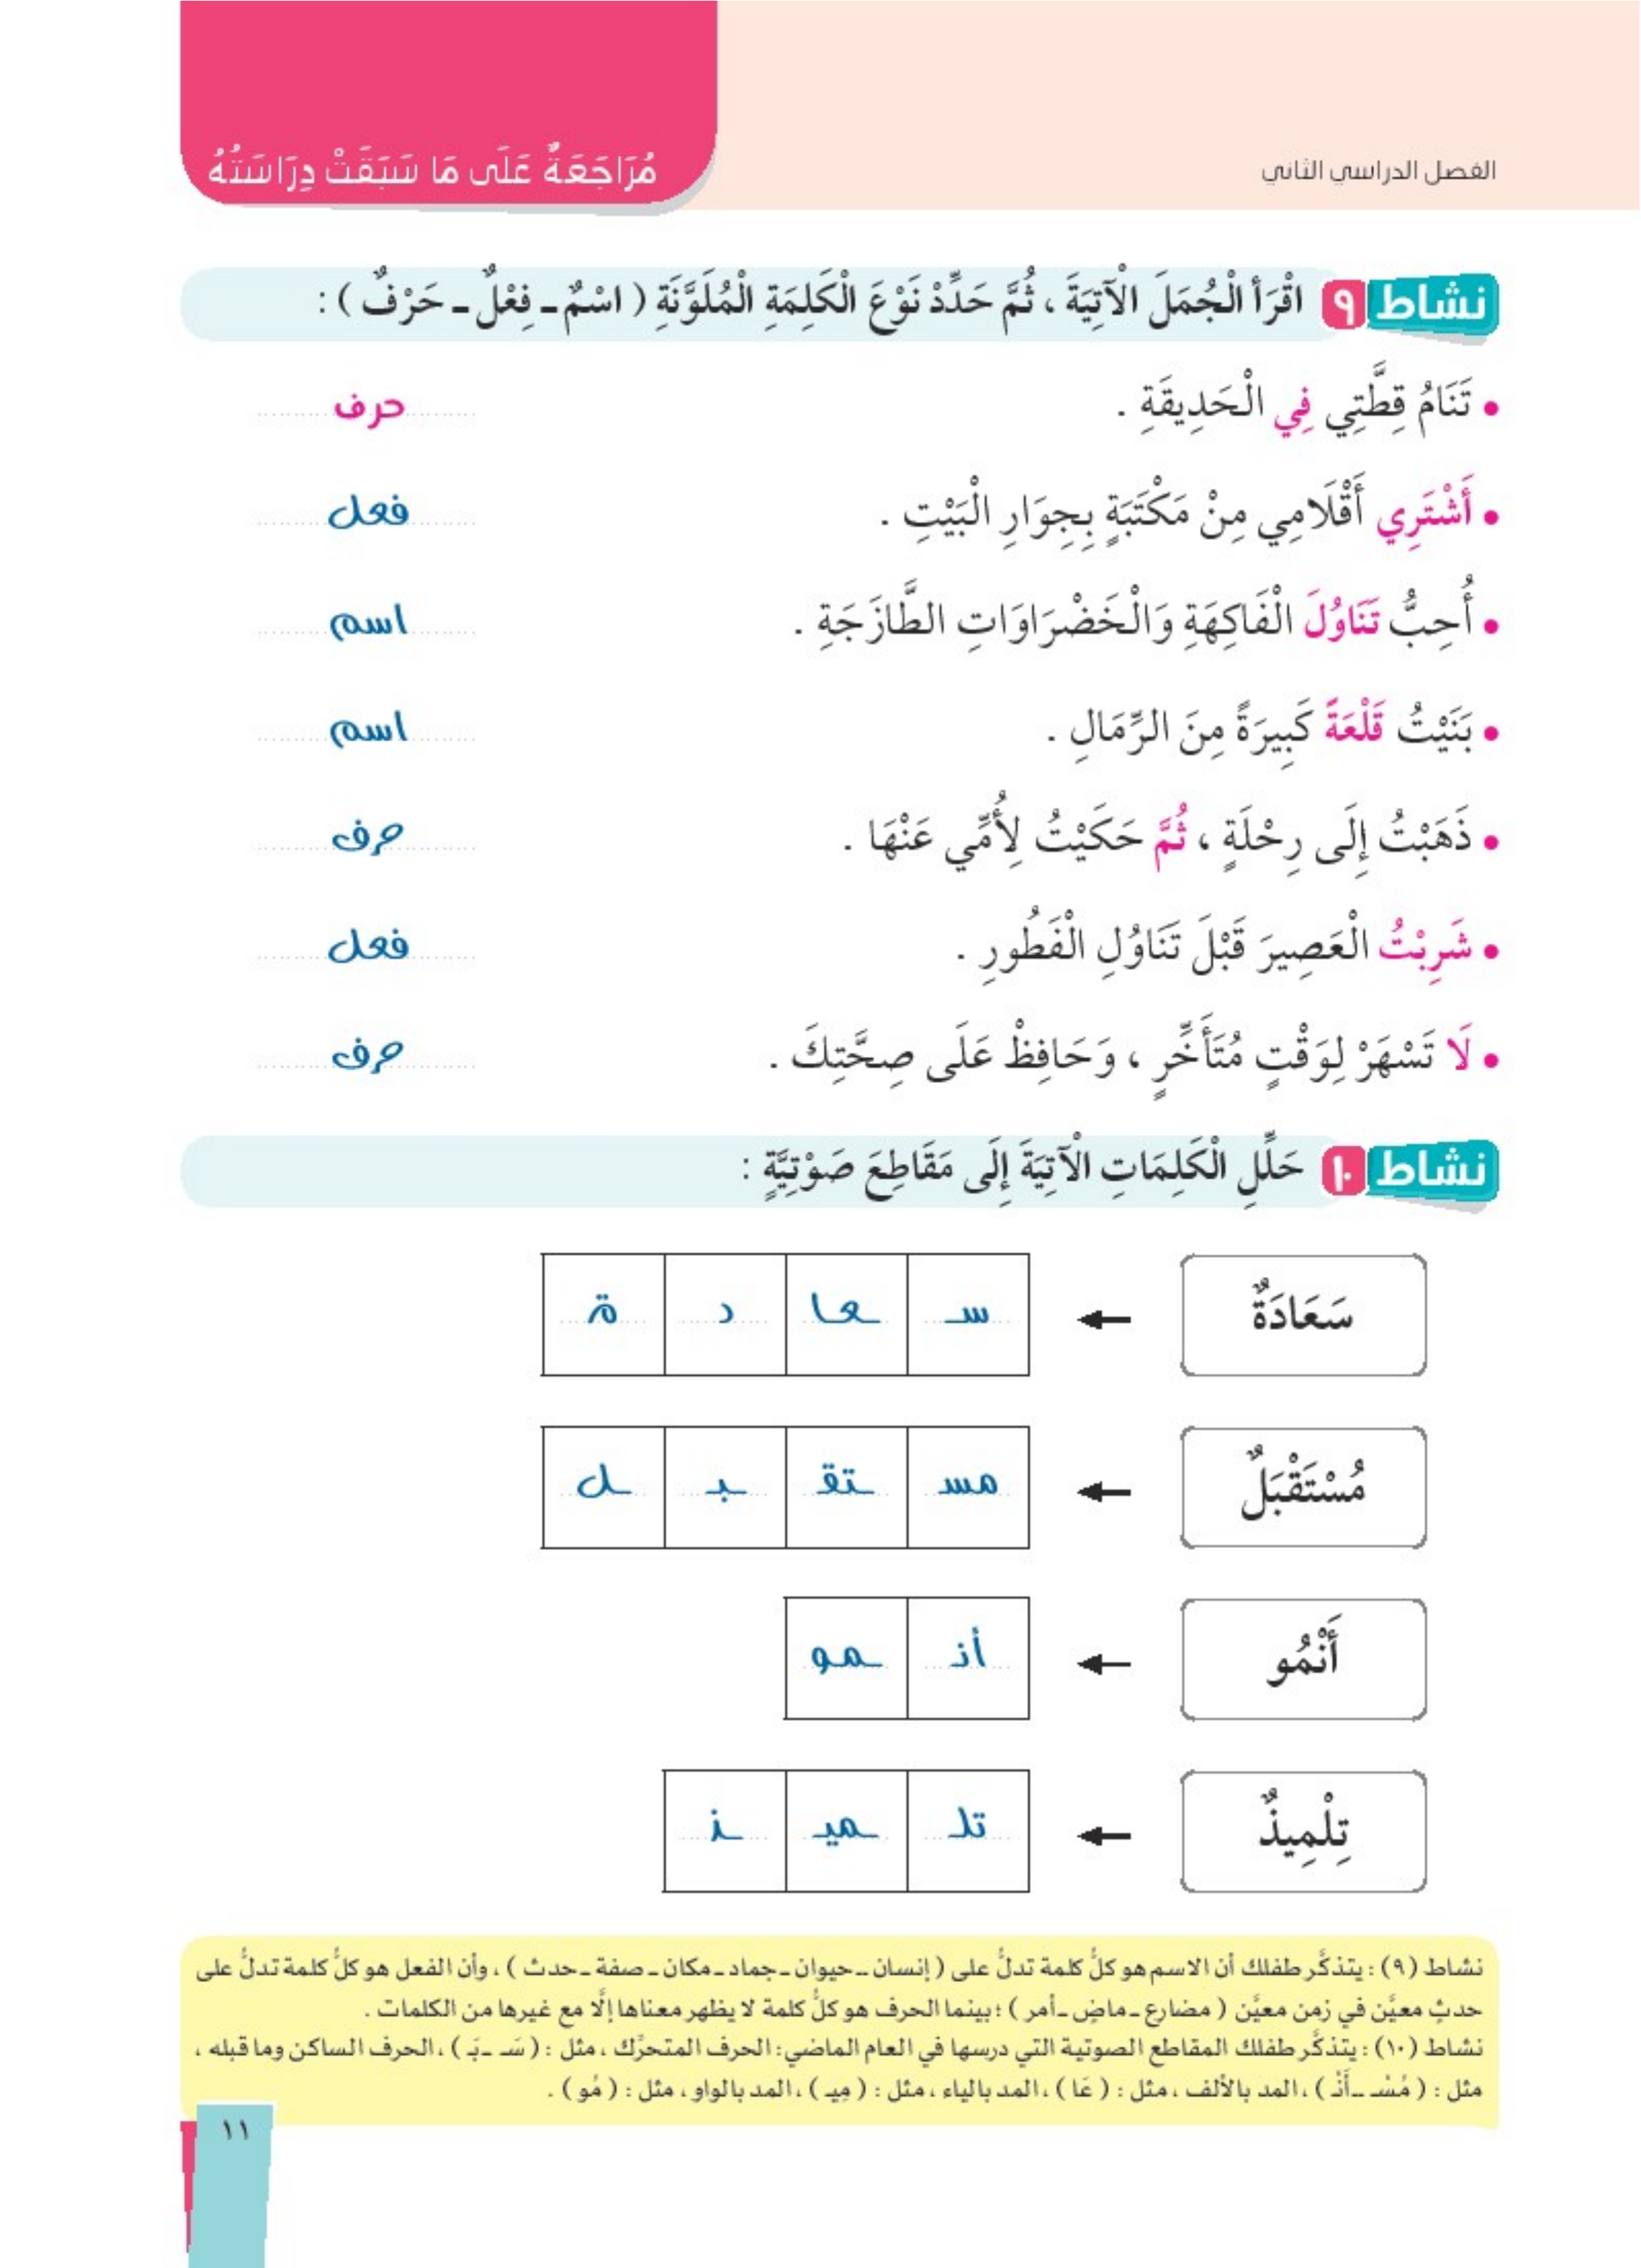 الفصل الدراسي الثاني
مُرَاجَعَةٌ عَلَى مَا سَبَقَتْ دِرَاسَتُهُ
نشاط ٩ اقْرَأ الْجُمَلَ الْآتِيَةَ ، ثُمَّ حَدِّدْ نَوْعَ الْكَلِمَةِ الْمُلَوَّنَةِ ( اسْمٌ - فِعْلٌ - حَرْفٌ ) :
• تَنَامُ قِطَّتِي فِي الْحَدِيقَةِ . حرف
• أَشْتَرِي أَقْلَامِي مِنْ مَكْتَبَةٍ بِجِوَارِ الْبَيْتِ . فعل
• أُحِبُّ تَنَاوُلَ الْفَاكِهَةِ وَالْخَضْرَاوَاتِ الطَّازَجَةِ . اسم
• بَنَيْتُ قَلْعَةً كَبِيرَةً مِنَ الرِّمَالِ . اسم
• ذَهَبْتُ إِلَى رِحْلَةٍ ، ثُمَّ حَكَيْتُ لِأُمِّي عَنْهَا . حرف
• شَرِبْتُ الْعَصِيرَ قَبْلَ تَنَاوُلِ الْفَطُورِ . فعل
• لَا تَسْهَرْ لِوَقْتٍ مُتَأَخِّرٍ ، وَحَافِظْ عَلَى صِحَّتِكَ . حرف
نشاط ١٠ حَلِّلِ الْكَلِمَاتِ الْآتِيَةَ إِلَى مَقَاطِعَ صَوْتِيَّةٍ :
سَعَادَةٌ سـ ـعا د ة
مُسْتَقْبَلٌ مسـ ـتقـ ـبـ ـل
أَنْمُو أنـ ـمو
تِلْمِيذٌ تلـ ـميـ ـذ
نشاط (٩) : يتذكَّر طفلك أن الاسم هو كلُّ كلمة تدلُّ على ( إنسان - حيوان - جماد - مكان - صفة - حدث ) ، وأن الفعل هو كلُّ كلمة تدلُّ على
حدثٍ معيَّن في زمن معيَّن ( مضارع - ماضٍ - أمر ) ؛ بينما الحرف هو كلُّ كلمة لا يظهر معناها إلَّا مع غيرها من الكلمات .
نشاط (١٠) : يتذكَّر طفلك المقاطع الصوتية التي درسها في العام الماضي: الحرف المتحرِّك ، مثل : ( سَـ ـبَـ ) ، الحرف الساكن وما قبله ،
مثل : ( مُسْـ ـ أَنْـ ) ، المد بالألف ، مثل : ( عَا ) ، المد بالياء ، مثل : ( مِيـ ) ، المد بالواو ، مثل : ( مُو ) .
١١